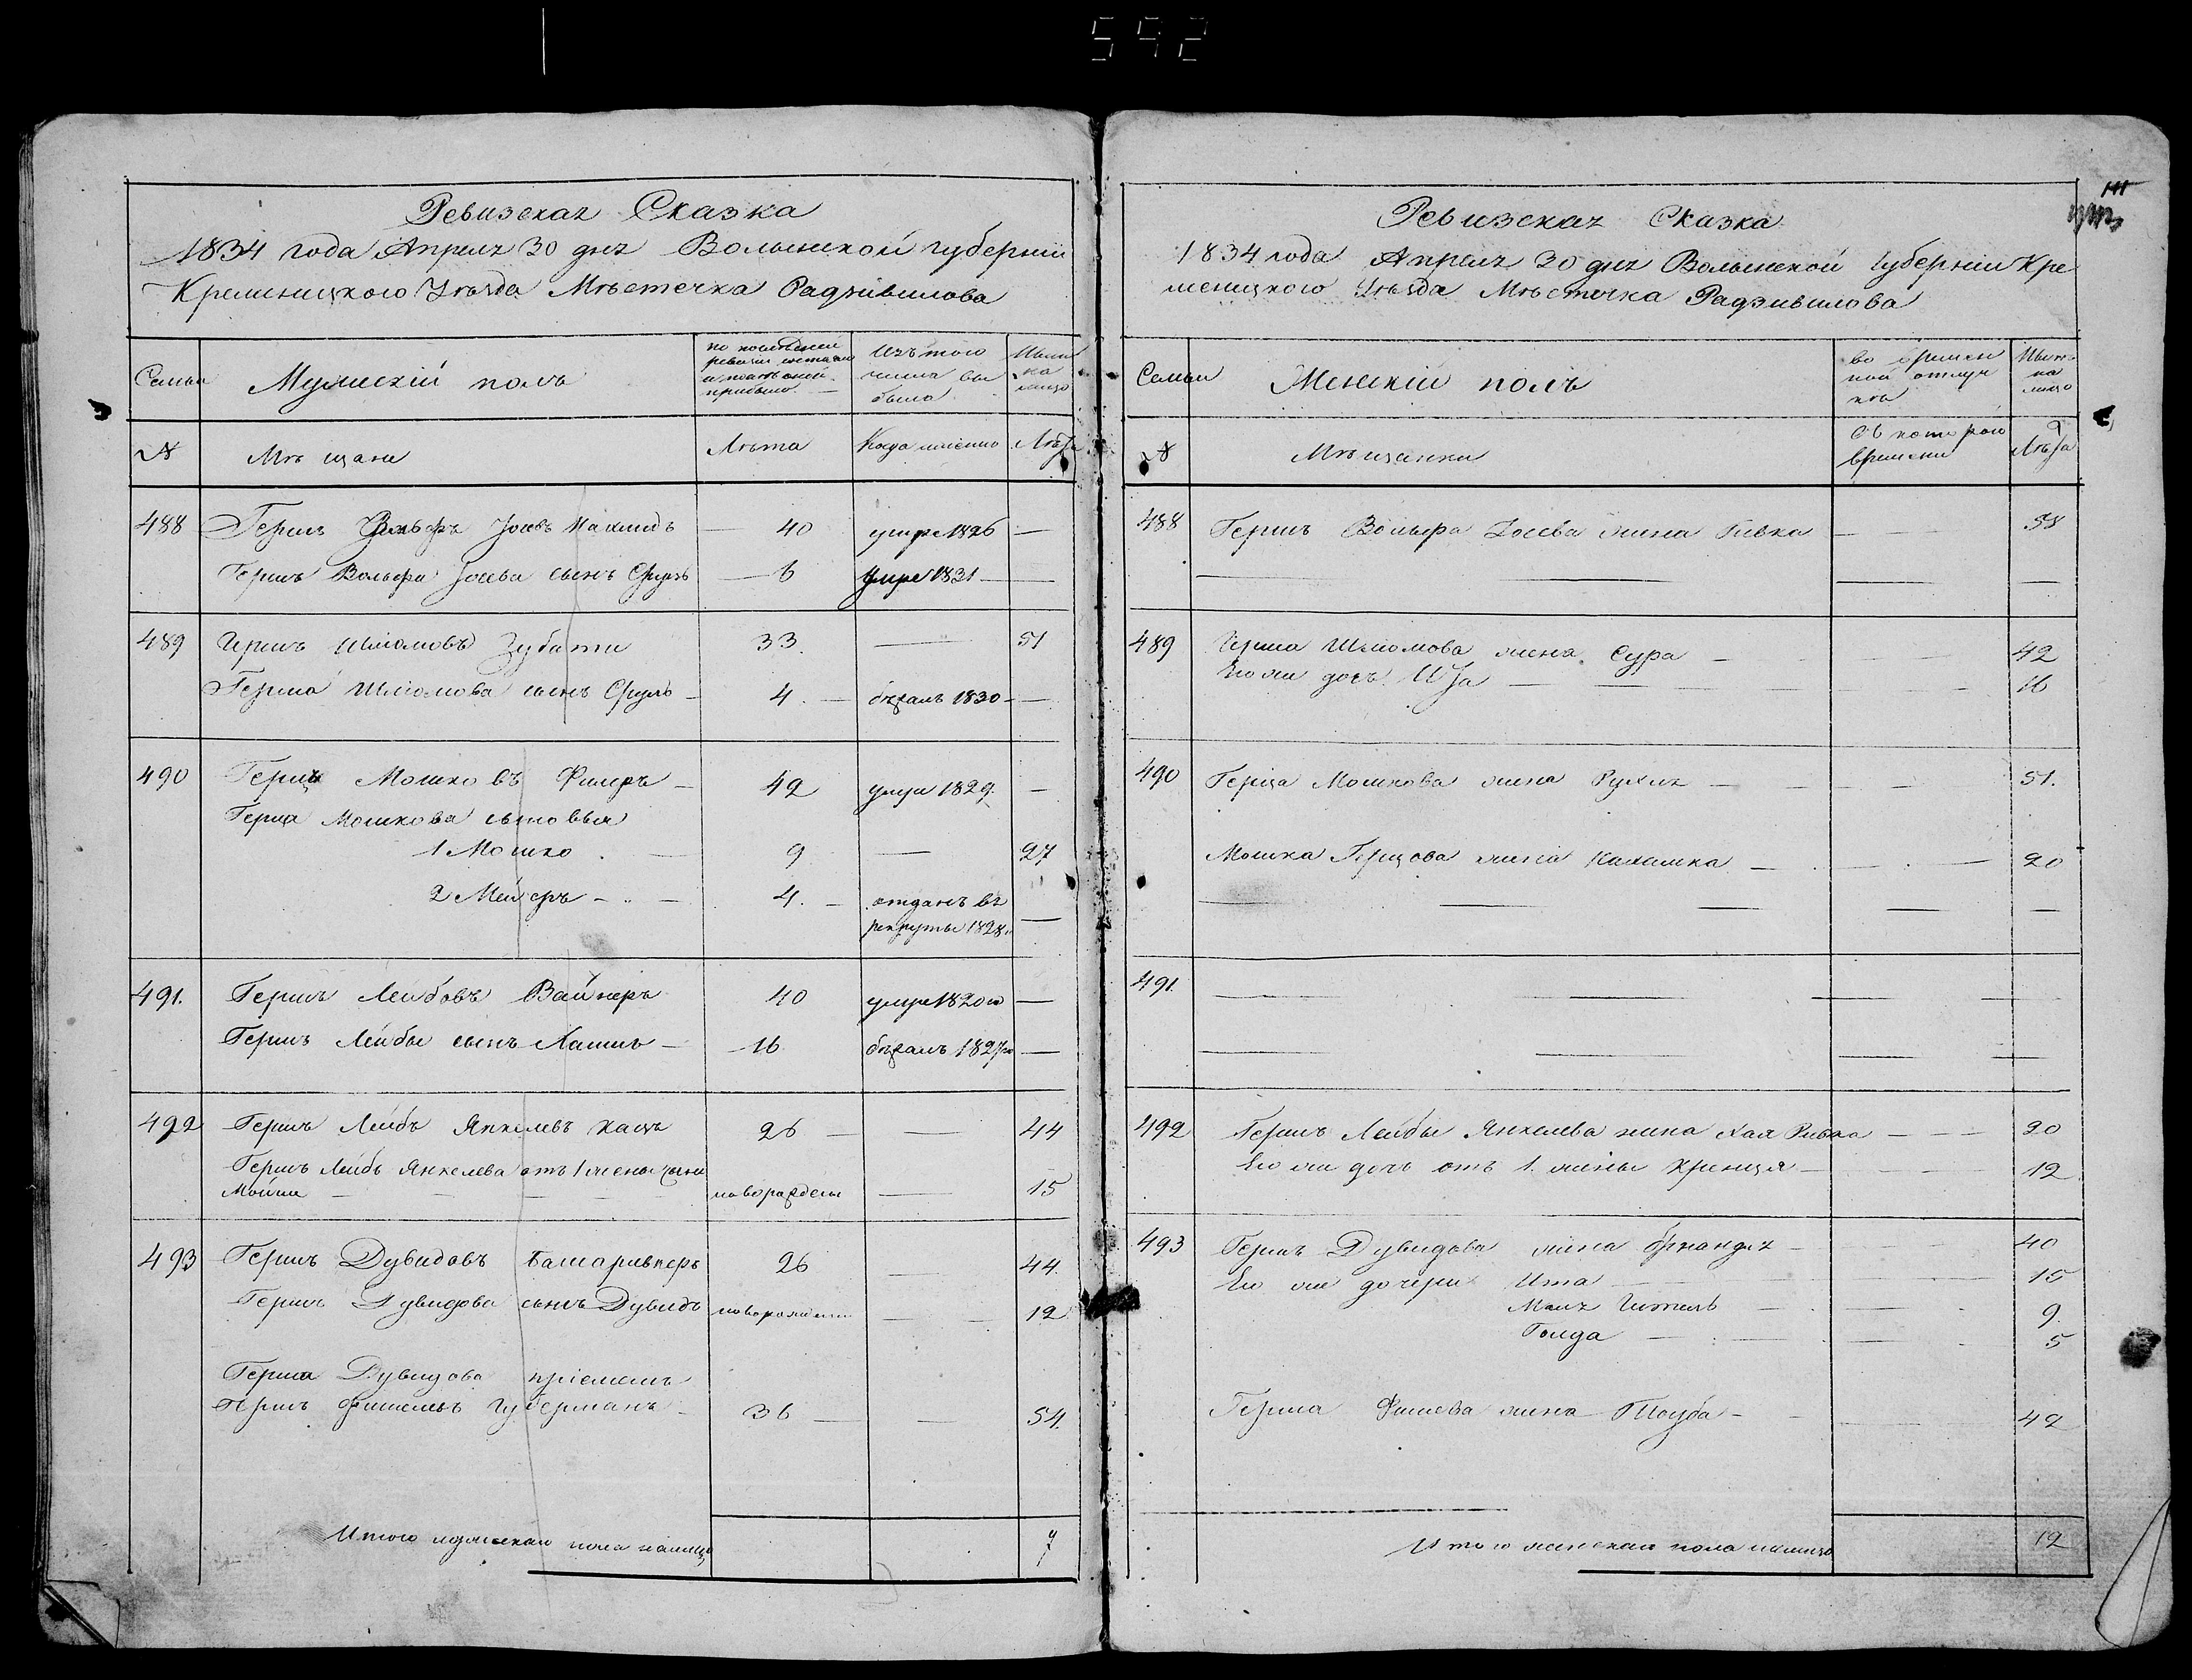 592
Ревизская Сказка
1834 года Апреля 30 дня Волынской губернии
Кременецкого Уѣзда Мѣстечка Радзивилова
Семьи
Мужескій полъ
по последней
ревизіи состояло
и после оной
прибыло
Изъ того
числа вы
было
Ныне
на
лицо
№
Мѣщане
Лѣта
Когда именно
Лѣта
488 Гершъ Вольфъ Іосевъ — 40 умре 1826 —
Гершъ Вольфа Іосева сынъ Сруль — 6 умре 1831 — —
489 Гершъ Шліомовъ Зубати 33. — 51
Герша Шліомова сынъ Сруль — 4. — бежалъ 1830 — —
490 Герцъ Мошковъ — 42 умре 1829. —
Герца Мошкова сыновья
1 Мошко . — 9 — 27
2 Мейеръ — . — 4. — отданъ въ
рекруты 1828. —
491. Гершъ Лейбовъ Вайнеръ 40 умре 1820 го —
Гершъ Лейбы сынъ Хаимъ — 16 бежалъ 1827 го —
492 Гершъ Лейбъ Янкелевъ Кацъ 26 — — 44
Гершъ Лейбъ Янкелева отъ 1 жены сынъ
Мойше — — — — новорожден — 15
493 Гершъ Дувидовъ 26 — 44.
Гершъ Дувидова сынъ Дувидъ новорожден — — 12
Герша Дувидова пріемышъ
Гершъ Фишелевъ Губерманъ — 36 — — 54.
Итого мужеска пола налицо 7
111
Ревизская Сказка
1834 года Апреля 30 дня Волынской Губерніи Кре
менецкого Уѣзда Мѣстечка Радзивилова
Семьи
Женскій полъ
во времен
ной отлуч
кѣ
Ныне
на
лицо
№
Мѣщанки
Съ которого
времени
Лѣта
488 Гершъ Вольфа Іосева жена Ривка — — — 58
— — — —
489 Герша Шліомова жена Сура — — — 42
Его же дочь Ита — — — — 16
490 Герца Мошкова жена Рухля — — — 51.
Мошка Герцова жена — — . — 20
— — — — —
491. — — — —
— — — —
492 Гершъ Лейбы Янкелева жена Хая Ривка — — — 20
Его же дочь отъ 1. жены Кренця — — — 12
493 Гершъ Дувидова жена — — — 40
Его же дочери Ита — — — — 15
Маля Гитель — . — . 9.
Голда — . — — — 5
Герша Фишева жена Тауба — — — 42
Итого женскаго пола налицо 12